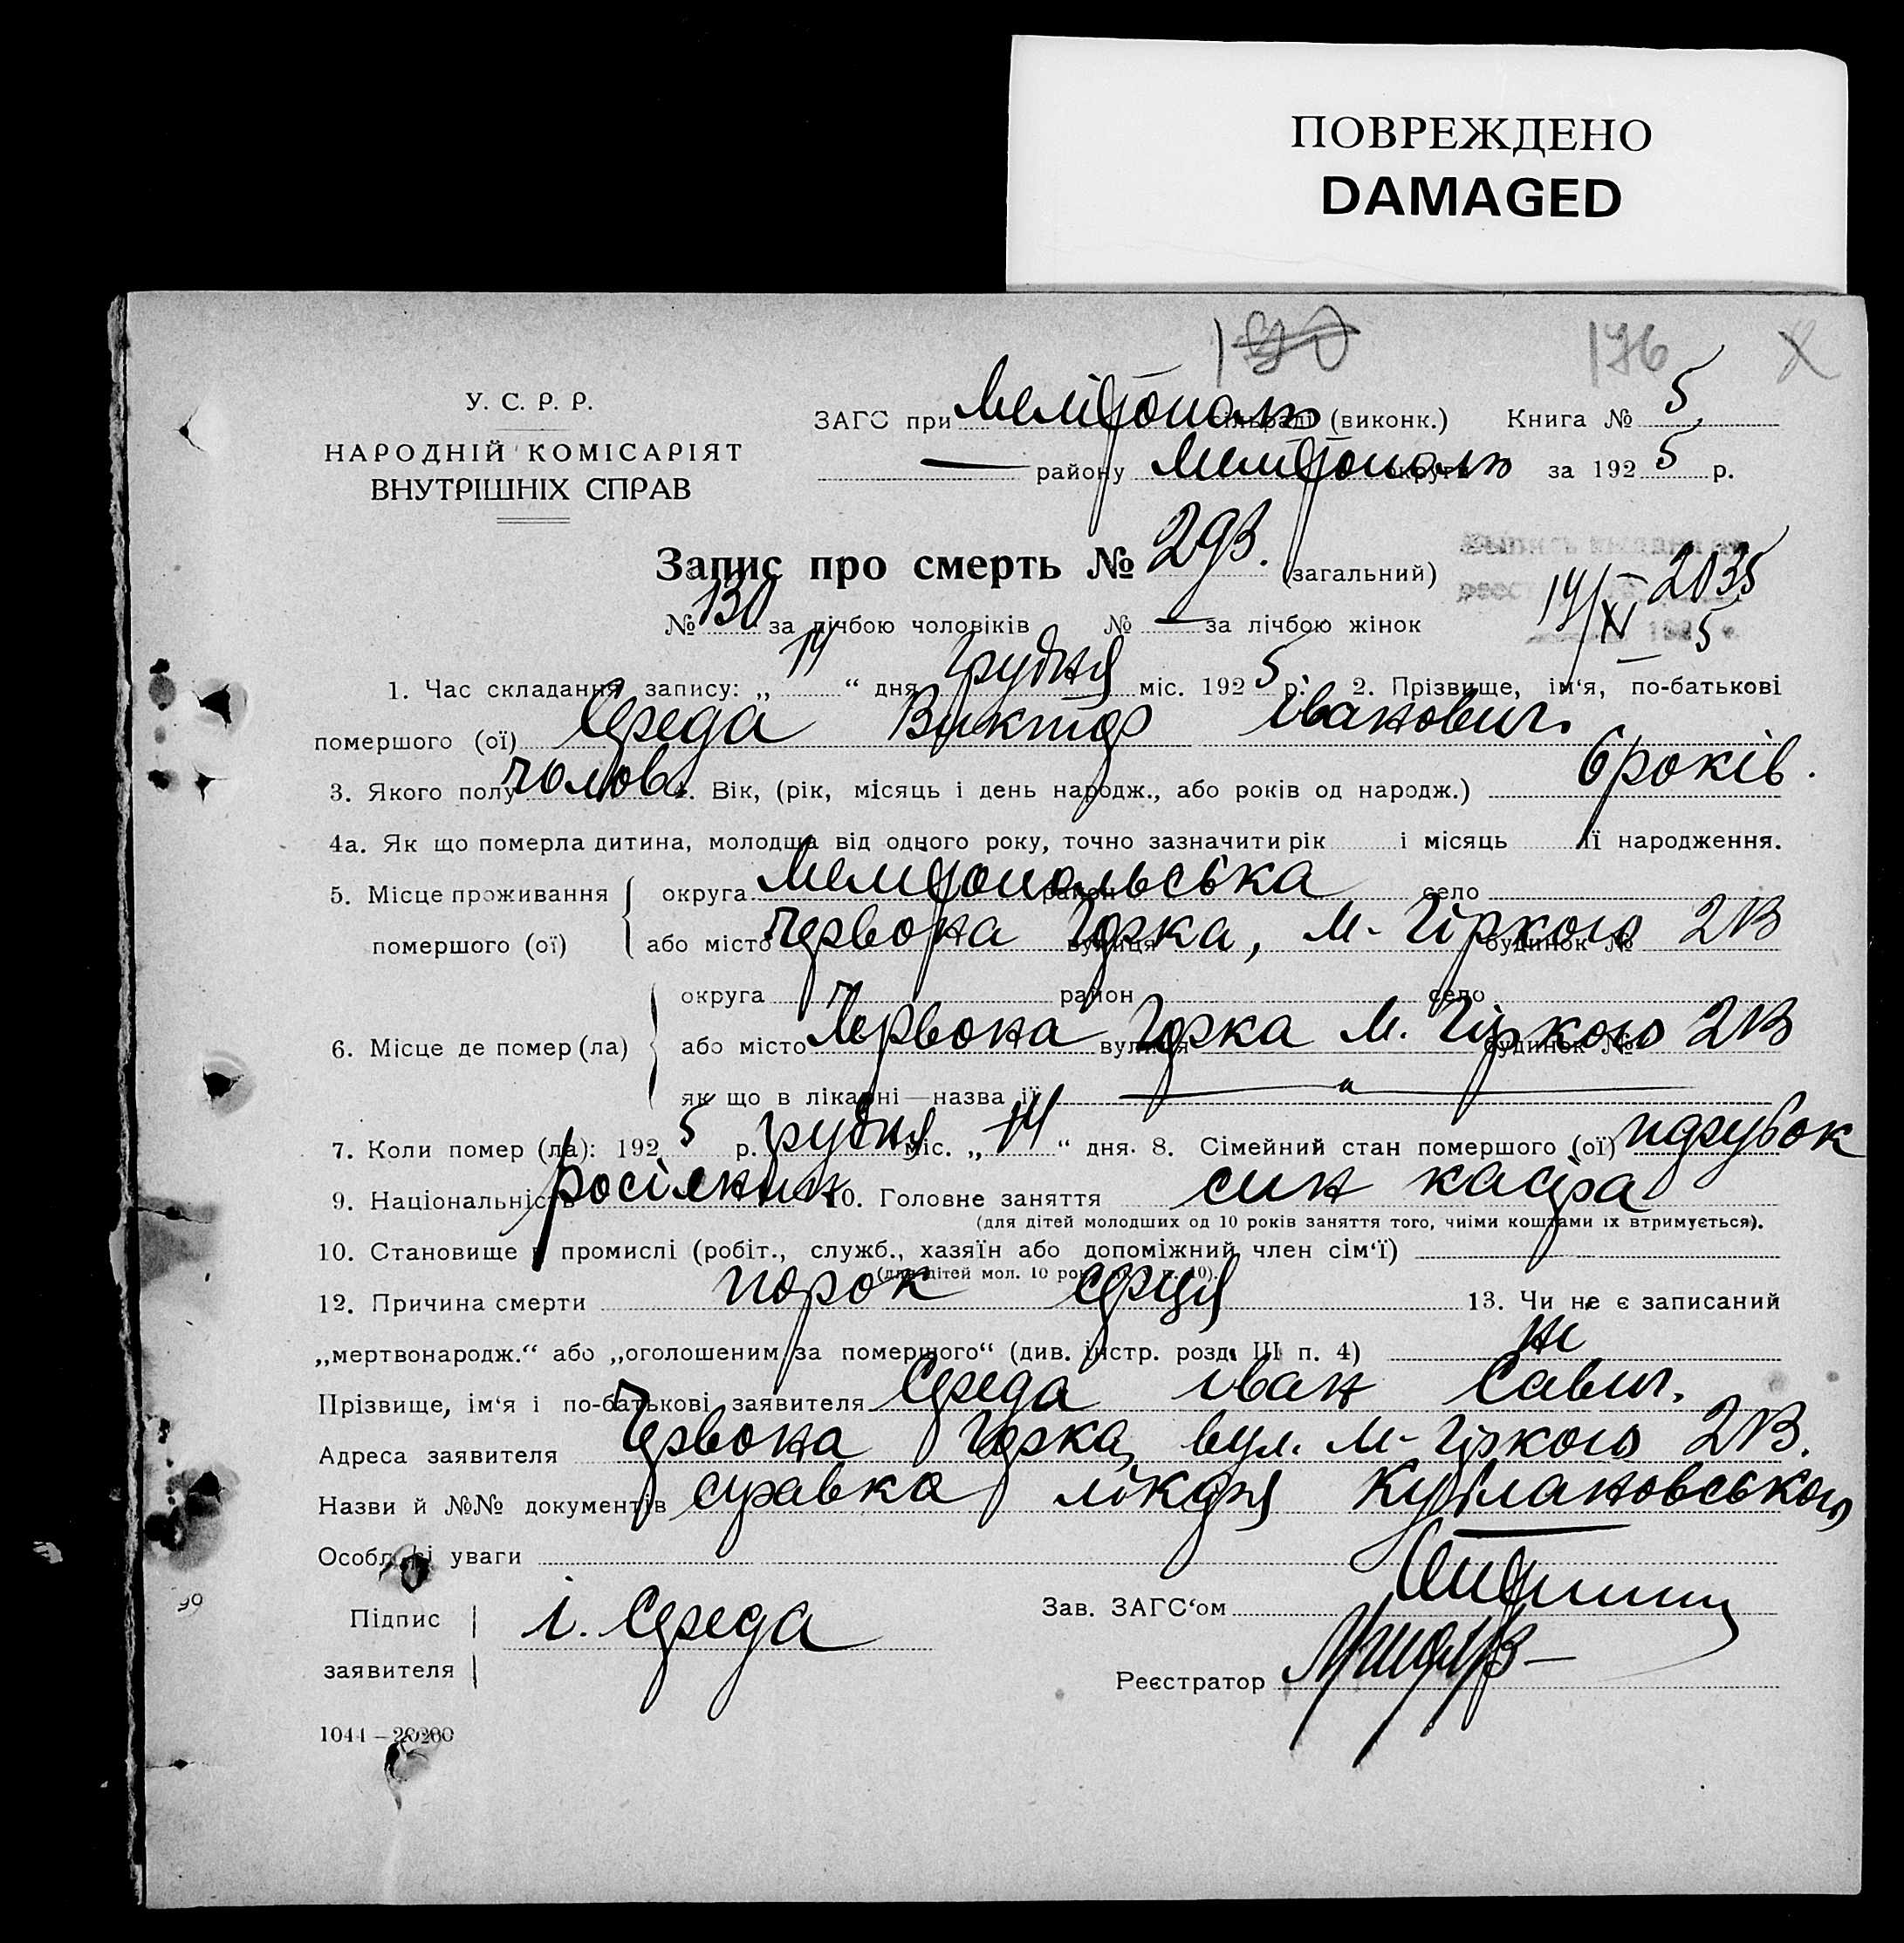 ПОВРЕЖДЕНО
DAMAGED
176 X
У. С. Р. Р.
НАРОДНІЙ КОМІСАРІЯТ
ВНУТРІШНІХ СПРАВ
ЗАГС при Мелітополю сільраді (виконк.) Книга № 5
— району Мелітополю округи за 1925 р.
Запис про смерть № 293. (загальний)
2035
№ 130 за лічбою чоловіків № — за лічбою жінок 14/XI 5
1. Час складання запису: „ 14 “ дня грудня міс. 1925 р. 2. Прізвище, ім‘я, по-батькові
помершого (ої) Середа Виктор Іванович.
3. Якого полу чолов. 4. Вік, (рік, місяць і день народж., або років од народж.) 6 років.
4а. Як що померла дитина, молодша від одного року, точно зазначити рік і місяць її народження.
5. Місце проживання округа Мелітопольська район село
помершого (ої) або місто Червона Горка, вулиця М-Гіркого будинок № 2В
округа район село
6. Місце де помер (ла) або місто Червона Горка вулиця М. Гіркого будинок № 2В
як що в лікарні—назва її — „ —
7. Коли помер (ла): 1925 р. грудня міс. „ 14 “ дня. 8. Сімейний стан помершого (ої) парубок
9. Національність 10. Головне заняття син
(для дітей молодших од 10 років заняття того, чиїми коштами їх втримується).
10. Становище в промислі (робіт., служб., хазяїн або допоміжний член сім‘ї)
(для дітей мол. 10 рок. п. 10).
12. Причина смерти порок серця 13. Чи не є записаний
„мертвонародж.“ або „оголошеним за помершого“ (див. інстр. розд. III п. 4) ні
Прізвище, ім‘я і по-батькові заявителя Середа Іван Савич.
Адреса заявителя Червона Горка, вул. М-Гіркого 2В.
Назви й №№ документів справка лікаря
Особливі уваги
Підпис
заявителя І. Середа
Зав. ЗАГС‘ом
Реєстратор
1044 —